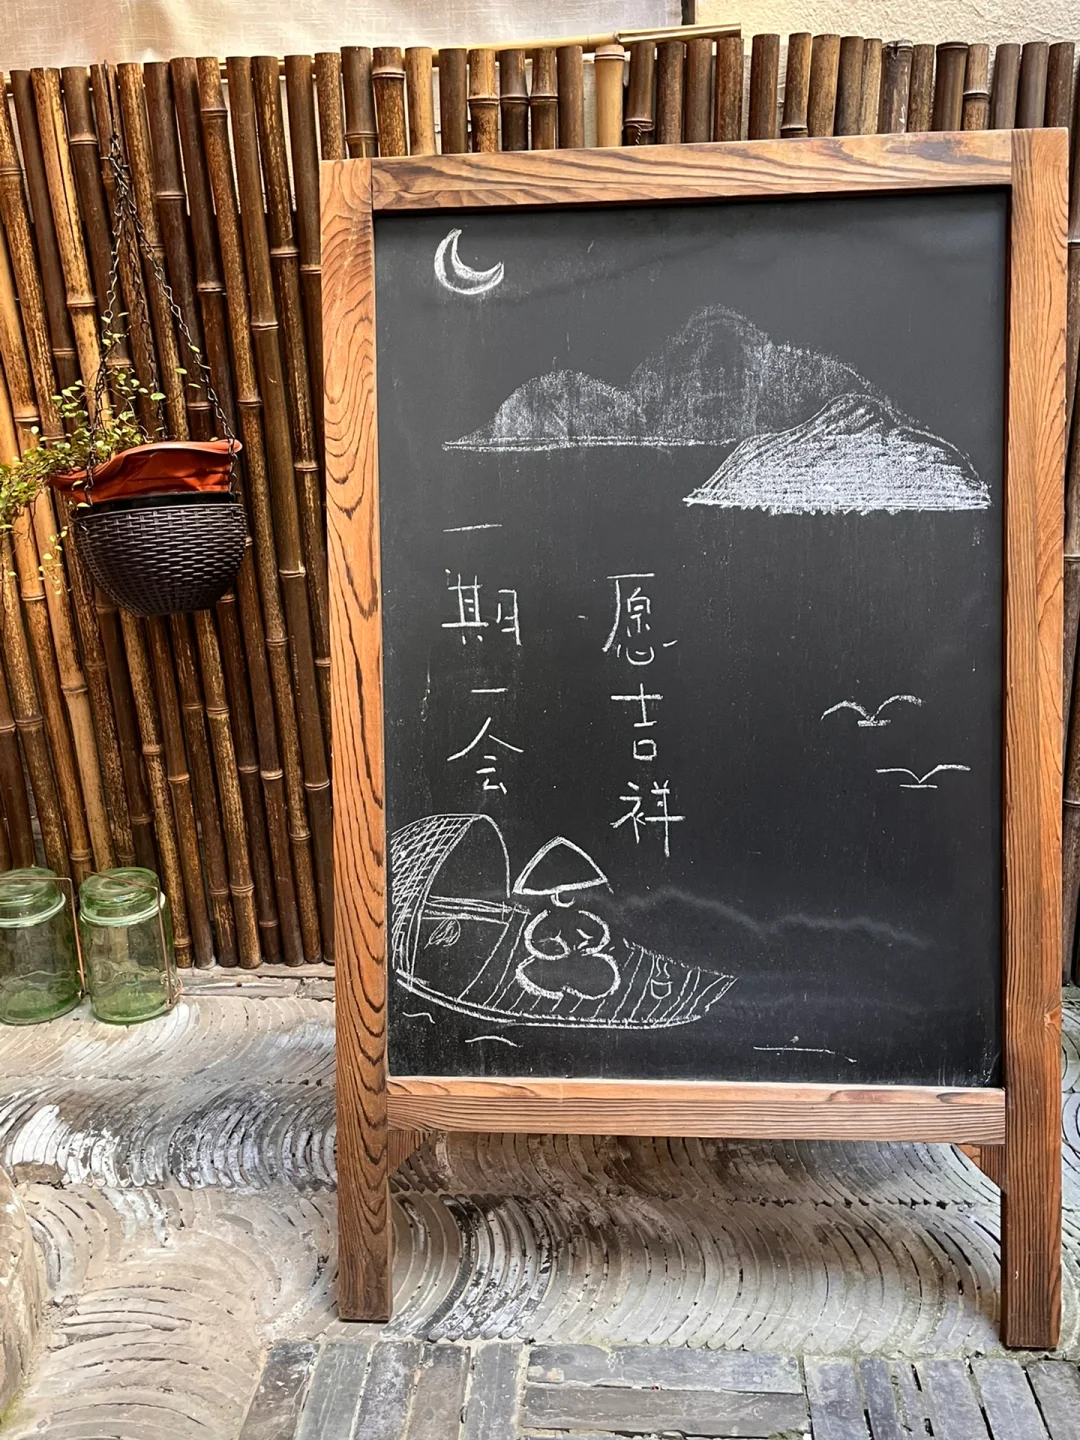 愿吉祥
一期一会